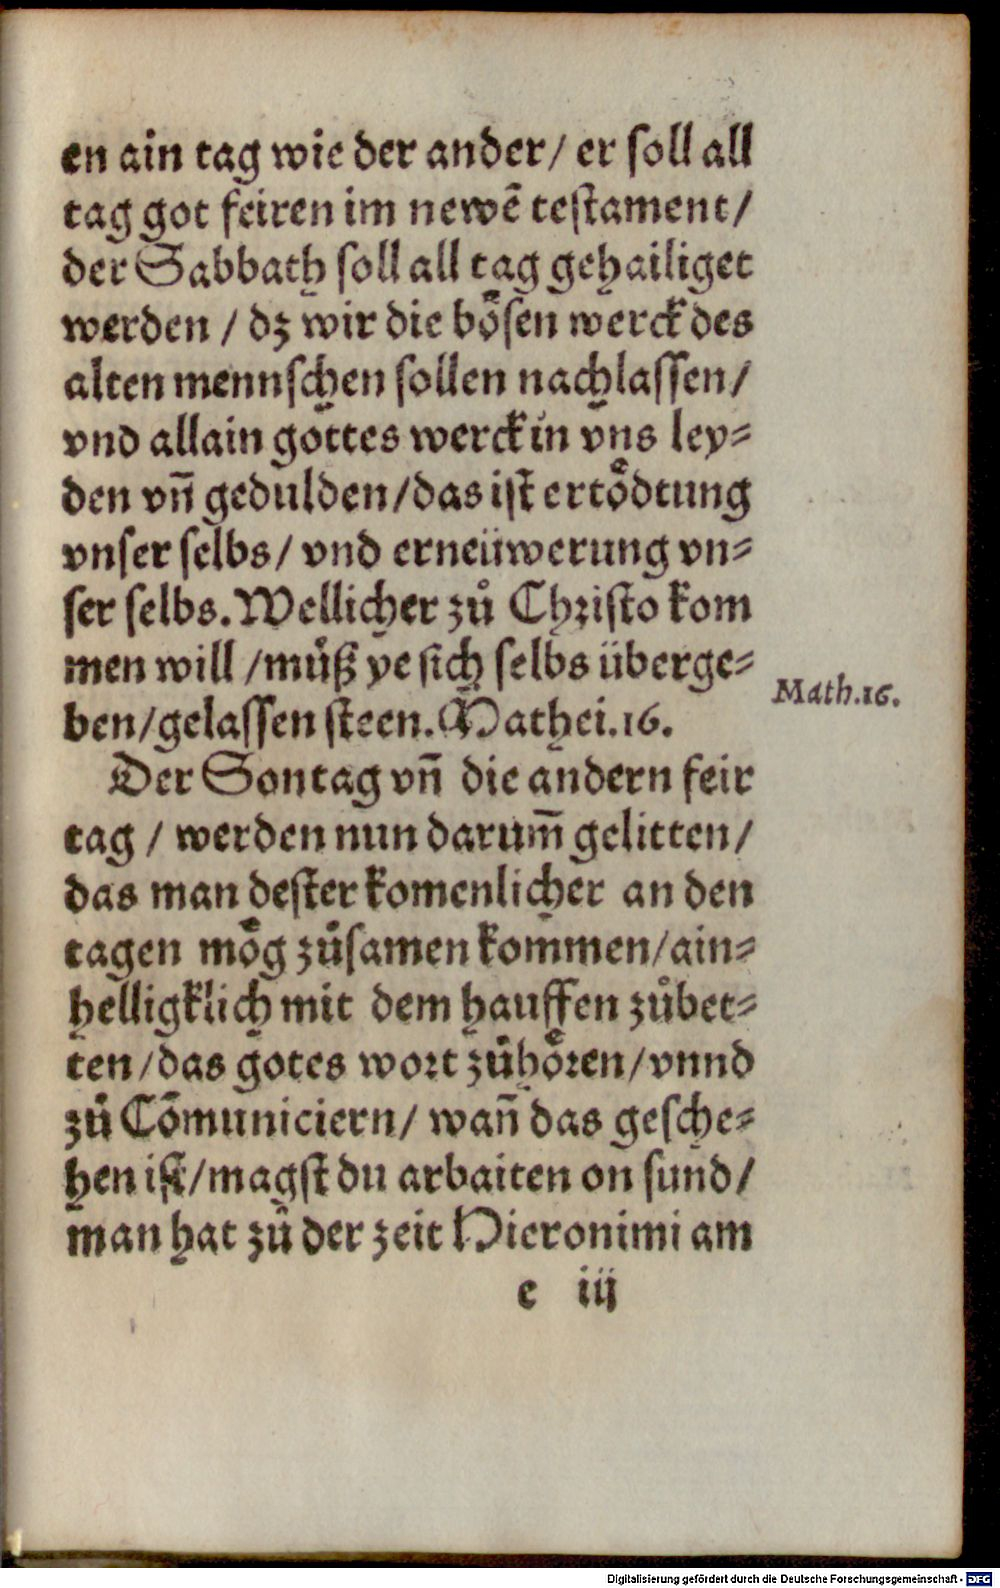 en ain tag wie der ander/ er soll all
tag got feiren im newē testament/
der Sabbath soll all tag gehailiget
werden / dz wir die boͤsen werck des
alten mennschen sollen nachlassen/
vnd allain gottes werck in vns ley⸗
den vn̄ gedulden/das ist ertoͤdtung
vnser selbs/ vnd erneüwerung vn⸗
ser selbs. Wellicher zuͦ Christo kom
men will /muͦß ye sich selbs überge⸗
ben/gelassen steen. Mathei.16.
Math.16.
Der Sontag vn̄ die andern feir
tag / werden nun darum̄ gelitten/
das man dester komenlicher an den
tagen moͤg zuͦsamen kommen/ain⸗
helligklich mit dem hauffen zuͦbet⸗
ten/das gotes wort zuͦhoͤren/vnnd
zuͦ Cōmuniciern/ wan̄ das gesche⸗
hen ist/magst du arbaiten on sund/
man hat zuͦ der zeit Hieronimi am
e iij
Digitalisierung gefördert durch die Deutsche Forschungsgemeinschaft - DFG